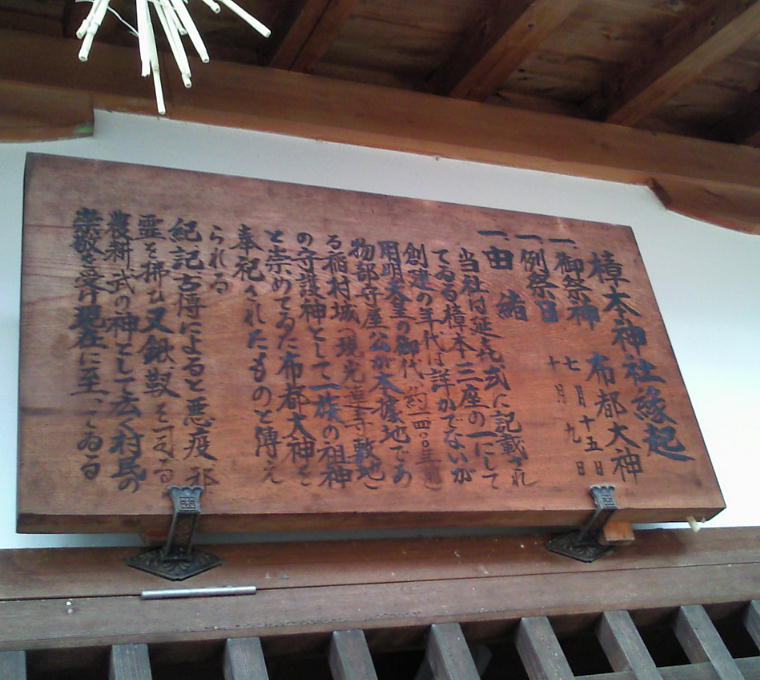 樟本神社縁起
一、御祭神 布都大神
一、例祭日 七月十五日
十月 九日
一、由緒
当社は延喜式に記載され
てゐる樟本三座の一にして
創建の年代は詳かでないが
用明天皇の御代(約一四〇〇年前)
物部守屋公が本拠地であ
る稲村城(現光蓮寺敷地)
の守護神として一族の祖神
と崇めてゐた布都大神を
奉祀されたものと傳え
られる
紀記古傳によると悪疫 邪
霊を拂ひ又鍬鼓を司る
農耕武の神として広く村民の
崇敬を受け現在に至ってゐる